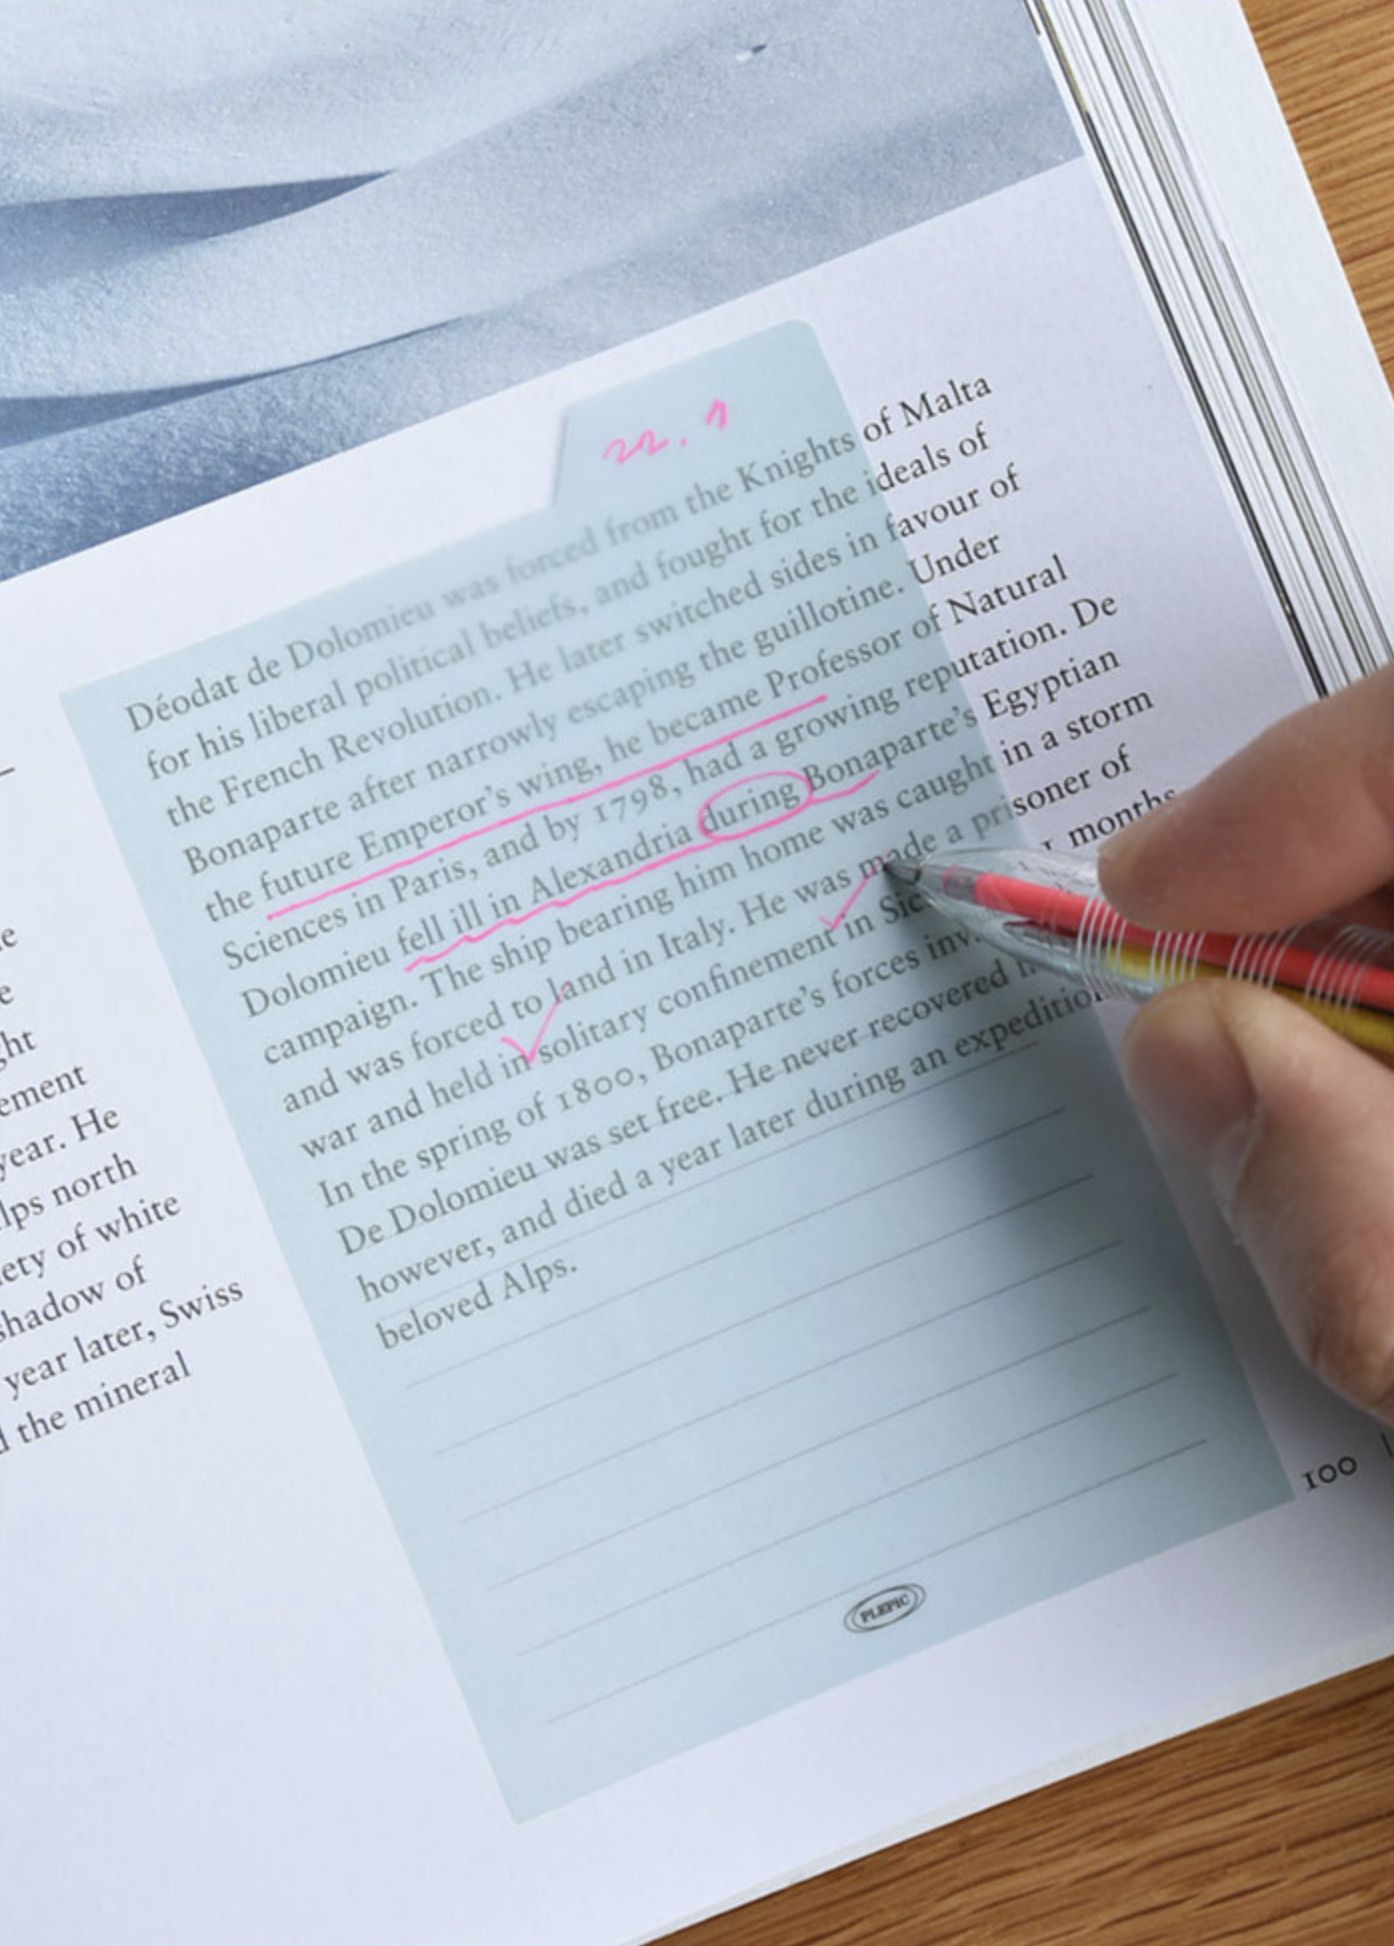 22. 1
Déodat de Dolomieu was forced from the Knights of Malta
for his liberal political beliefs, and fought for the ideals of
the French Revolution. He later switched sides in favour of
Bonaparte after narrowly escaping the guillotine. Under
the future Emperor's wing, he became Professor of Natural
Sciences in Paris, and by 1798, had a growing reputation. De
Dolomieu fell ill in Alexandria during Bonaparte's Egyptian
campaign. The ship bearing him home was caught in a storm
and was forced to land in Italy. He was made a prisoner of
war and held in solitary confinement in months
In the spring of 1800, Bonaparte's forces
De Dolomieu was set free. He never recovered
however, and died a year later during an expedition
beloved Alps.
ement
year. He
lps north
ety of white
shadow of
year later, Swiss
the mineral
PLEPIC
100